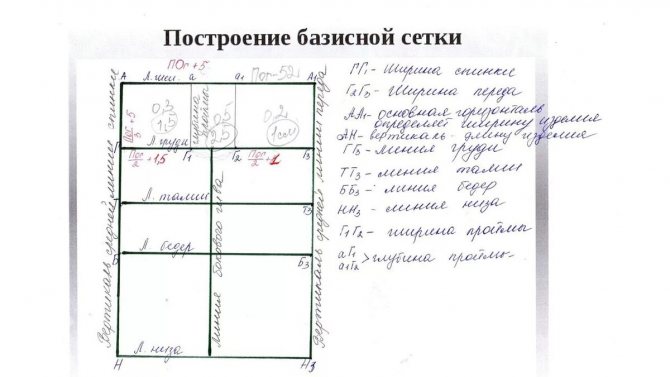 Построение базисной сетки
ПОг+5
А Л. ши. а а₁ Пог-52 А₁
0,3
1,5
ширина
проймы
0,2
1 см
Пог/3 + 5
Г Л. груди Г₁ Г₂ Г₃
Пог/2 +1,5
Пог/2 +1
Т Л. талии Т₃
Б Л. бедер Б₃
Л. низа
Н Н₃
Вертикаль средней линии спинки
линия бокового шва
Вертикаль средней линии переда
ГГ₁ - ширина спинки
Г₂Г₃ - ширина переда
АА₁ - основная горизонталь
определяет ширину изделия
АН - вертикаль - длину изделия
ГГ₃ - линия груди
ТТ₃ - линия талии
ББ₃ - линия бедер
НН₃ - линия низа
Г₁Г₂ - ширина проймы
аГ₁
а₁Г₂ > глубина проймы